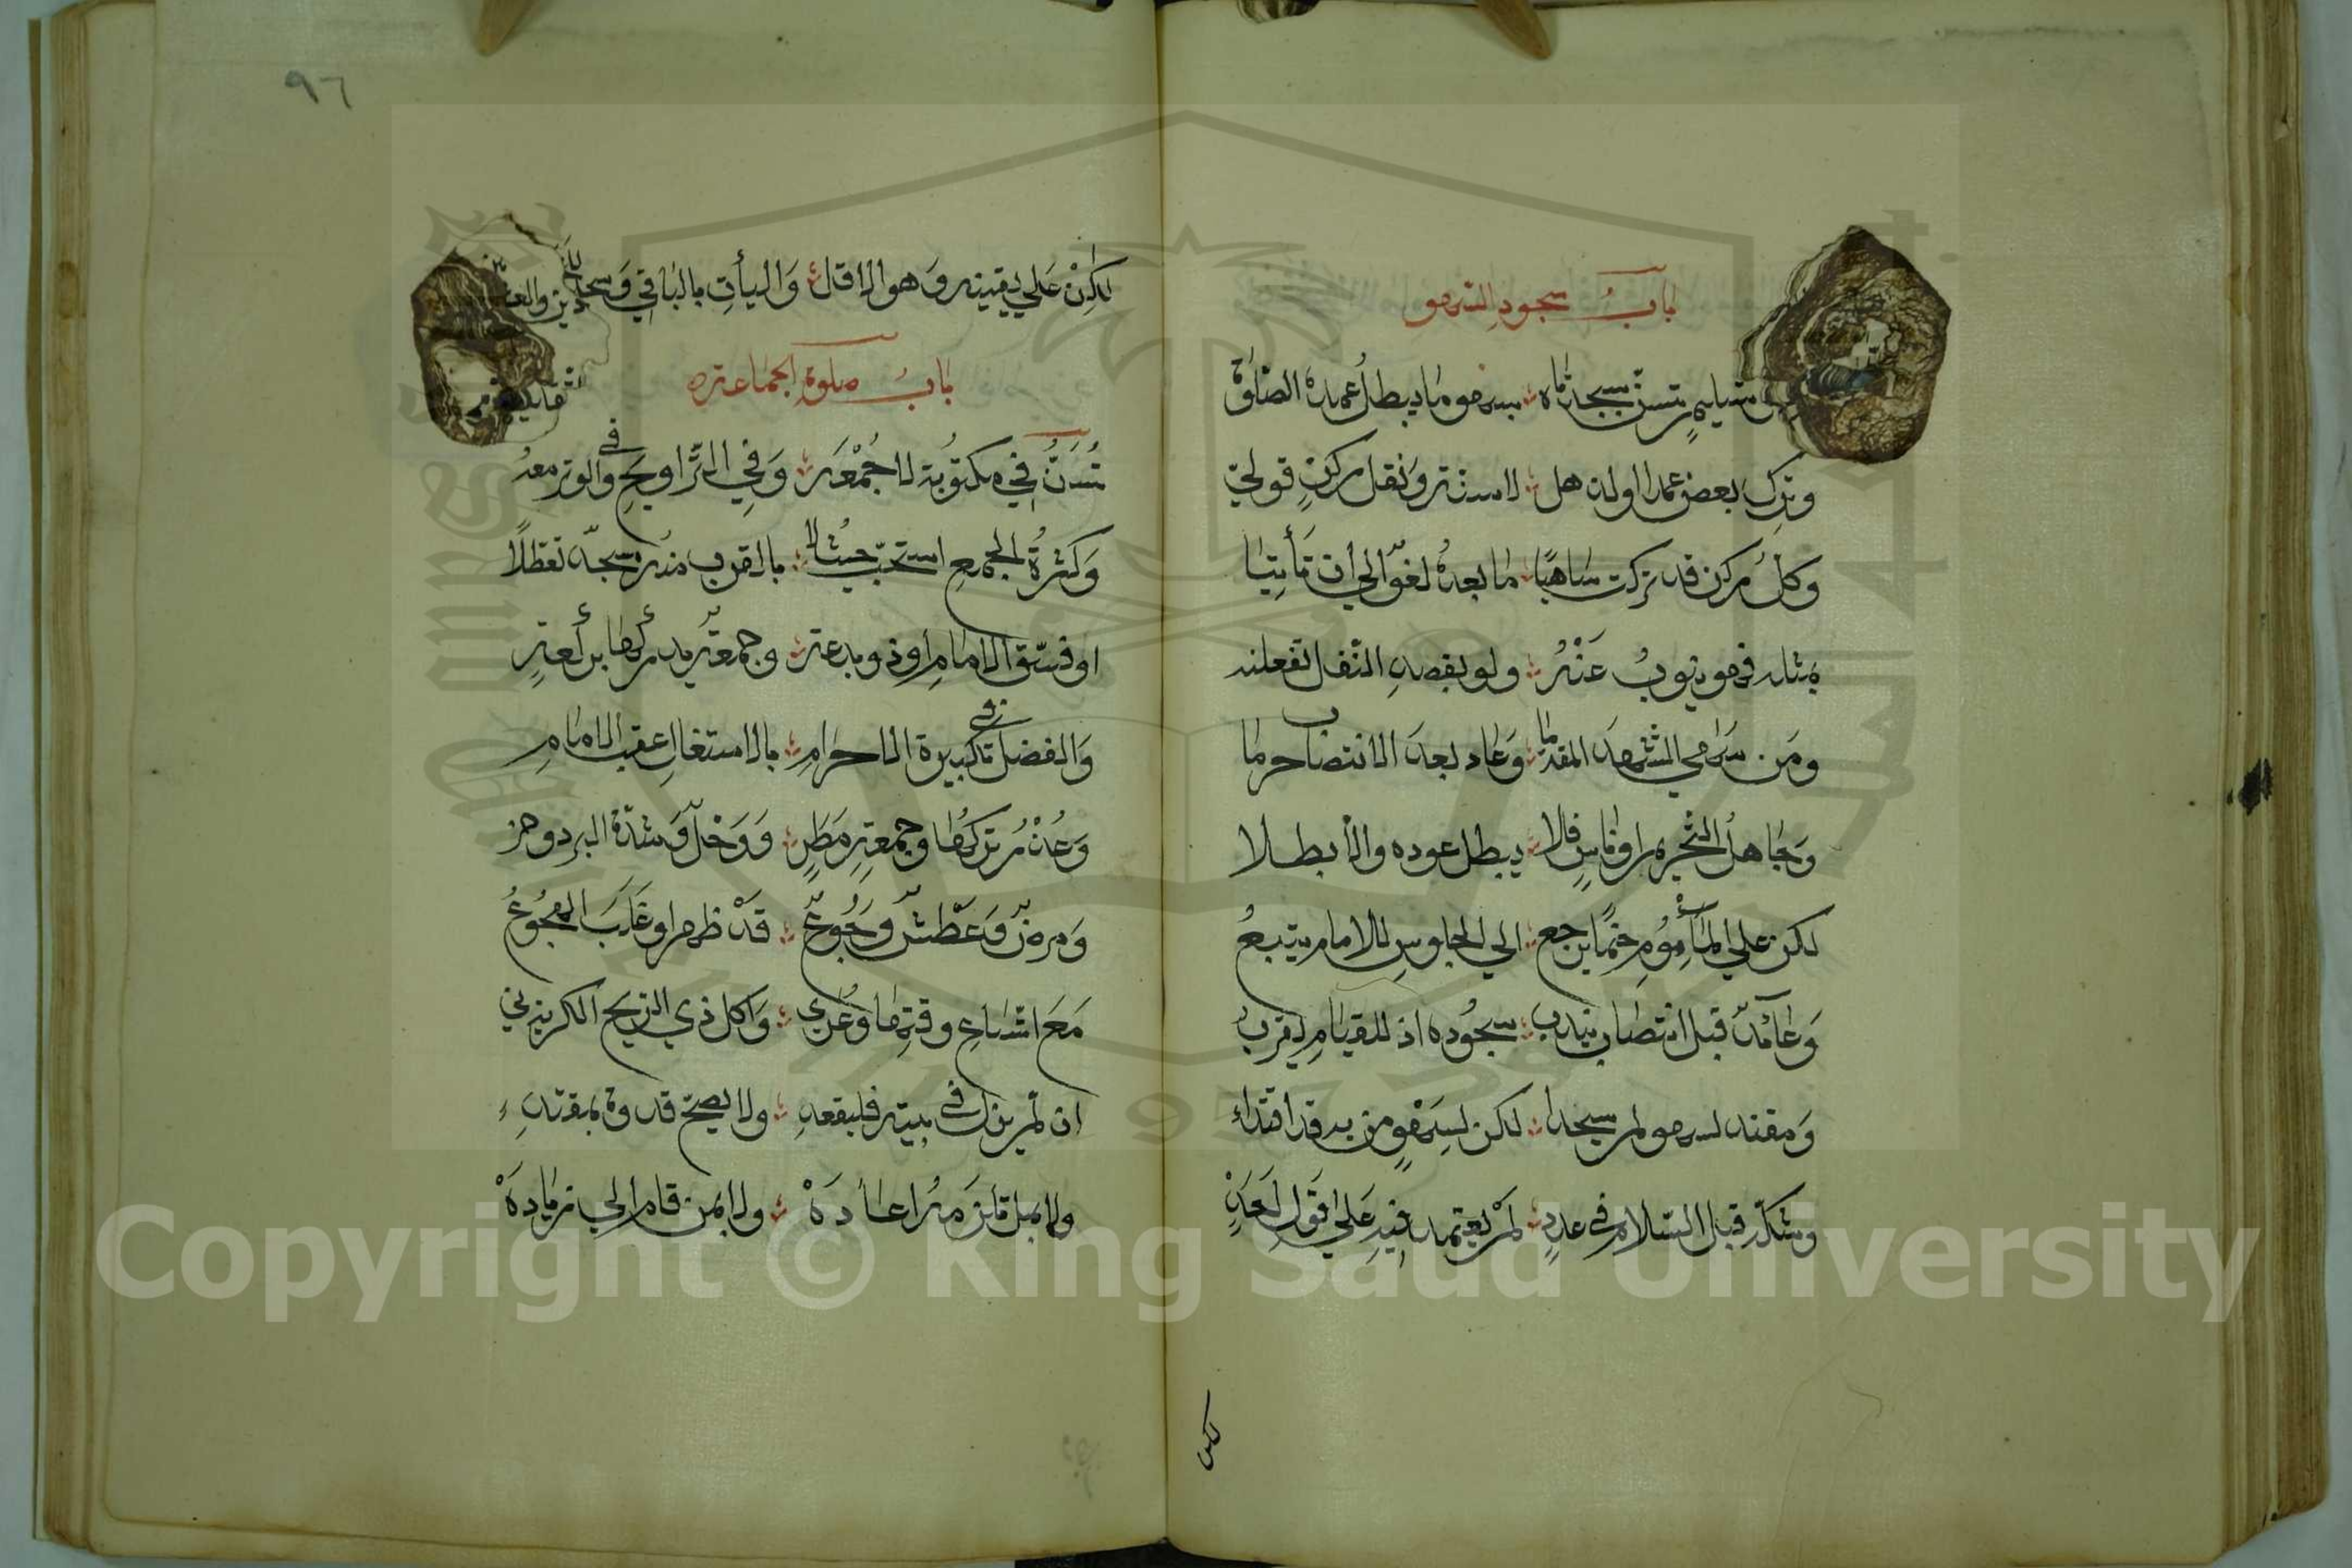 باب سجود السهو
تسليم تسن سجدتاه بسهو ما يبطل عمده الصلاة
وترك بعض عمدا او لذهل لا سنة ونقل ركن قولي
وكل ركن قد تركت ساهيا ما بعده لغو الي أن تأتيا
بمثله فهو ينوب عنه ولو بقصد النفل تفعلنه
ومن نسي التشهد المقدما وعاد بعد الانتصاب حرما
وجاهل التحريم او ناس فلا يبطل عوده والا بطلا
لكن علي المأموم حتما يرجع الي الجلوس للامام يتبع
وعائد قبل انتصاب يندب سجوده اذ للقيام يقرب
ومقتد لسهوه لم يسجدا لكن لسهو من به قد اقتداء
وشك قبل السلام في عدد لم يعتمد فيه علي قول احد
لكن
٩٦
لكن علي يقينه وهو الاقل وليأت بالباقي ويسجد
باب صلوة الجماعة
تسن في مكتوبة لا جمعة وفي التراويح وفي الوتر معه
وكثرة الجمع استحبت حيث لا بالقرب منه مسجد تعطلا
او فسق الامام او ذو بدعة وجمعة يدركها بركعة
والفضل في تكبيرة الاحرام بالاشتغال عقب الامام
وعذر تركها وجمعة مطر ووحل وشدة البرد وحر
ومرض وعطش وجوع قد ظهرا وغلب الهجوع
مع اتساع وقتها وعري واكل ذي الريح الكريه ني
ان لم يزل في بيته فليقعد ولا يصح قدوة بمقتد
ولا بمن تلزمه اعادة ولا بمن قام الي زيادة